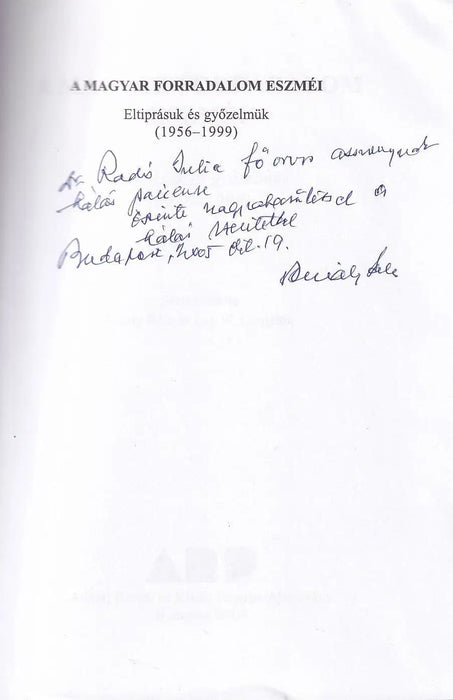 A MAGYAR FORRADALOM ESZMÉI
Eltiprásuk és győzelmük
(1956–1999)
Dr Radó Julia főorvos asszonynak
hálás paciense
őszinte nagyrabecsüléssel és
hálás szeretettel
Budapest, 2005 okt. 19.